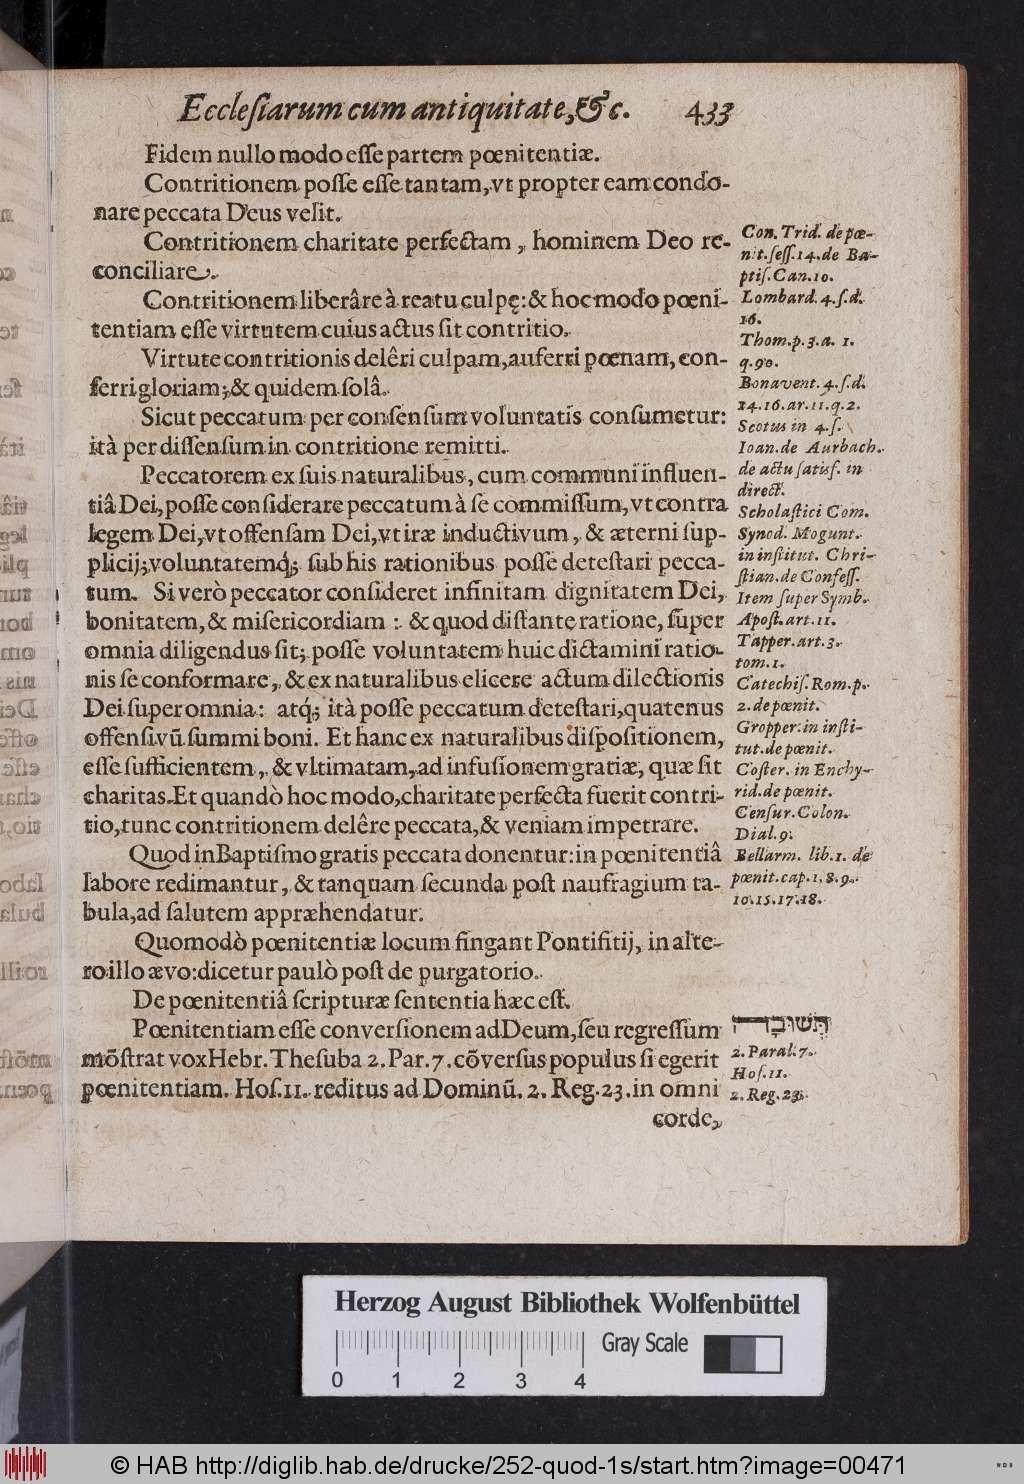 Eccleſiarum cum antiquitate, &c. 433
Fidem nullo modo eſſe partem pœnitentiæ.
Contritionem poſſe eſſe tantam, vt propter eam condo-
nare peccata Deus velit.
Contritionem charitate perfectam, hominem Deo re-
conciliare.
Contritionem liberâre à reatu culpę: & hoc modo pœni-
tentiam eſſe virtutem cuius actus ſit contritio.
Virtute contritionis delêri culpam, auferri pœnam, con-
ferri gloriam; & quidem ſolâ.
Sicut peccatum per conſenſum voluntatis conſumetur:
ità per diſſenſum in contritione remitti.
Peccatorem ex ſuis naturalibus, cum communi influen-
tiâ Dei, poſſe conſiderare peccatum à ſe commiſſum, vt contra
legem Dei, vt offenſam Dei, vt iræ inductivum, & æterni ſup-
plicij; voluntatemq́; ſub his rationibus poſſe deteſtari pecca-
tum. Si verò peccator conſideret infinitam dignitatem Dei,
bonitatem, & miſericordiam: & quod diſtante ratione, ſuper
omnia diligendus ſit; poſſe voluntatem huic dictamini ratio-
nis ſe conformare, & ex naturalibus elicere actum dilectionis
Dei ſuper omnia: atq́; ità poſſe peccatum deteſtari, quatenus
offenſivũ ſummi boni. Et hanc ex naturalibus diſpoſitionem,
eſſe ſufficientem, & vltimatam, ad infuſionem gratiæ, quæ ſit
charitas. Et quandò hoc modo, charitate perfecta fuerit contri-
tio, tunc contritionem delêre peccata, & veniam impetrare.
Quod in Baptiſmo gratis peccata donentur: in pœnitentiâ
labore redimantur, & tanquam ſecunda poſt naufragium ta-
bula, ad ſalutem appræhendatur.
Quomodò pœnitentiæ locum fingant Pontifitij, in alte-
ro illo ævo: dicetur paulò poſt de purgatorio.
De pœnitentiâ ſcripturæ ſententia hæc eſt.
Pœnitentiam eſſe converſionem ad Deum, ſeu regreſſum
mõſtrat vox Hebr. Theſuba 2. Par. 7. cõverſus populus ſi egerit
pœnitentiam. Hoſ. 11. reditus ad Dominũ. 2. Reg. 23. in omni
corde,
Con. Trid. de pœ-
nit. ſeſſ. 14. de Ba-
ptiſ. Can. 10.
Lombard. 4. ſ. d.
16.
Thom. p. 3. a. 1.
q. 90.
Bonavent. 4. ſ. d.
14. 16. ar. 11. q. 2.
Scotus in 4. ſ.
Ioan. de Aurbach.
de actu ſatisf. in
direct.
Scholaſtici Com.
Synod. Mogunt.
in inſtitut. Chri-
ſtian. de Confeſſ.
Item ſuper Symb.
Apoſt. art. 11.
Tapper. art. 3.
tom. 1.
Catechiſ. Rom. p.
2. de pœnit.
Gropper. in inſti-
tut. de pœnit.
Coſter. in Enchy-
rid. de pœnit.
Cenſur. Colon.
Dial. 9.
Bellarm. lib. 1. de
pœnit. cap. 1. 8. 9.
10. 15. 17. 18.
תְּשׁוּבָה
2. Paral. 7.
Hoſ. 11.
2. Reg. 23.
Herzog August Bibliothek Wolfenbüttel
Gray Scale
0 1 2 3 4
© HAB http://diglib.hab.de/drucke/252-quod-1s/start.htm?image=00471